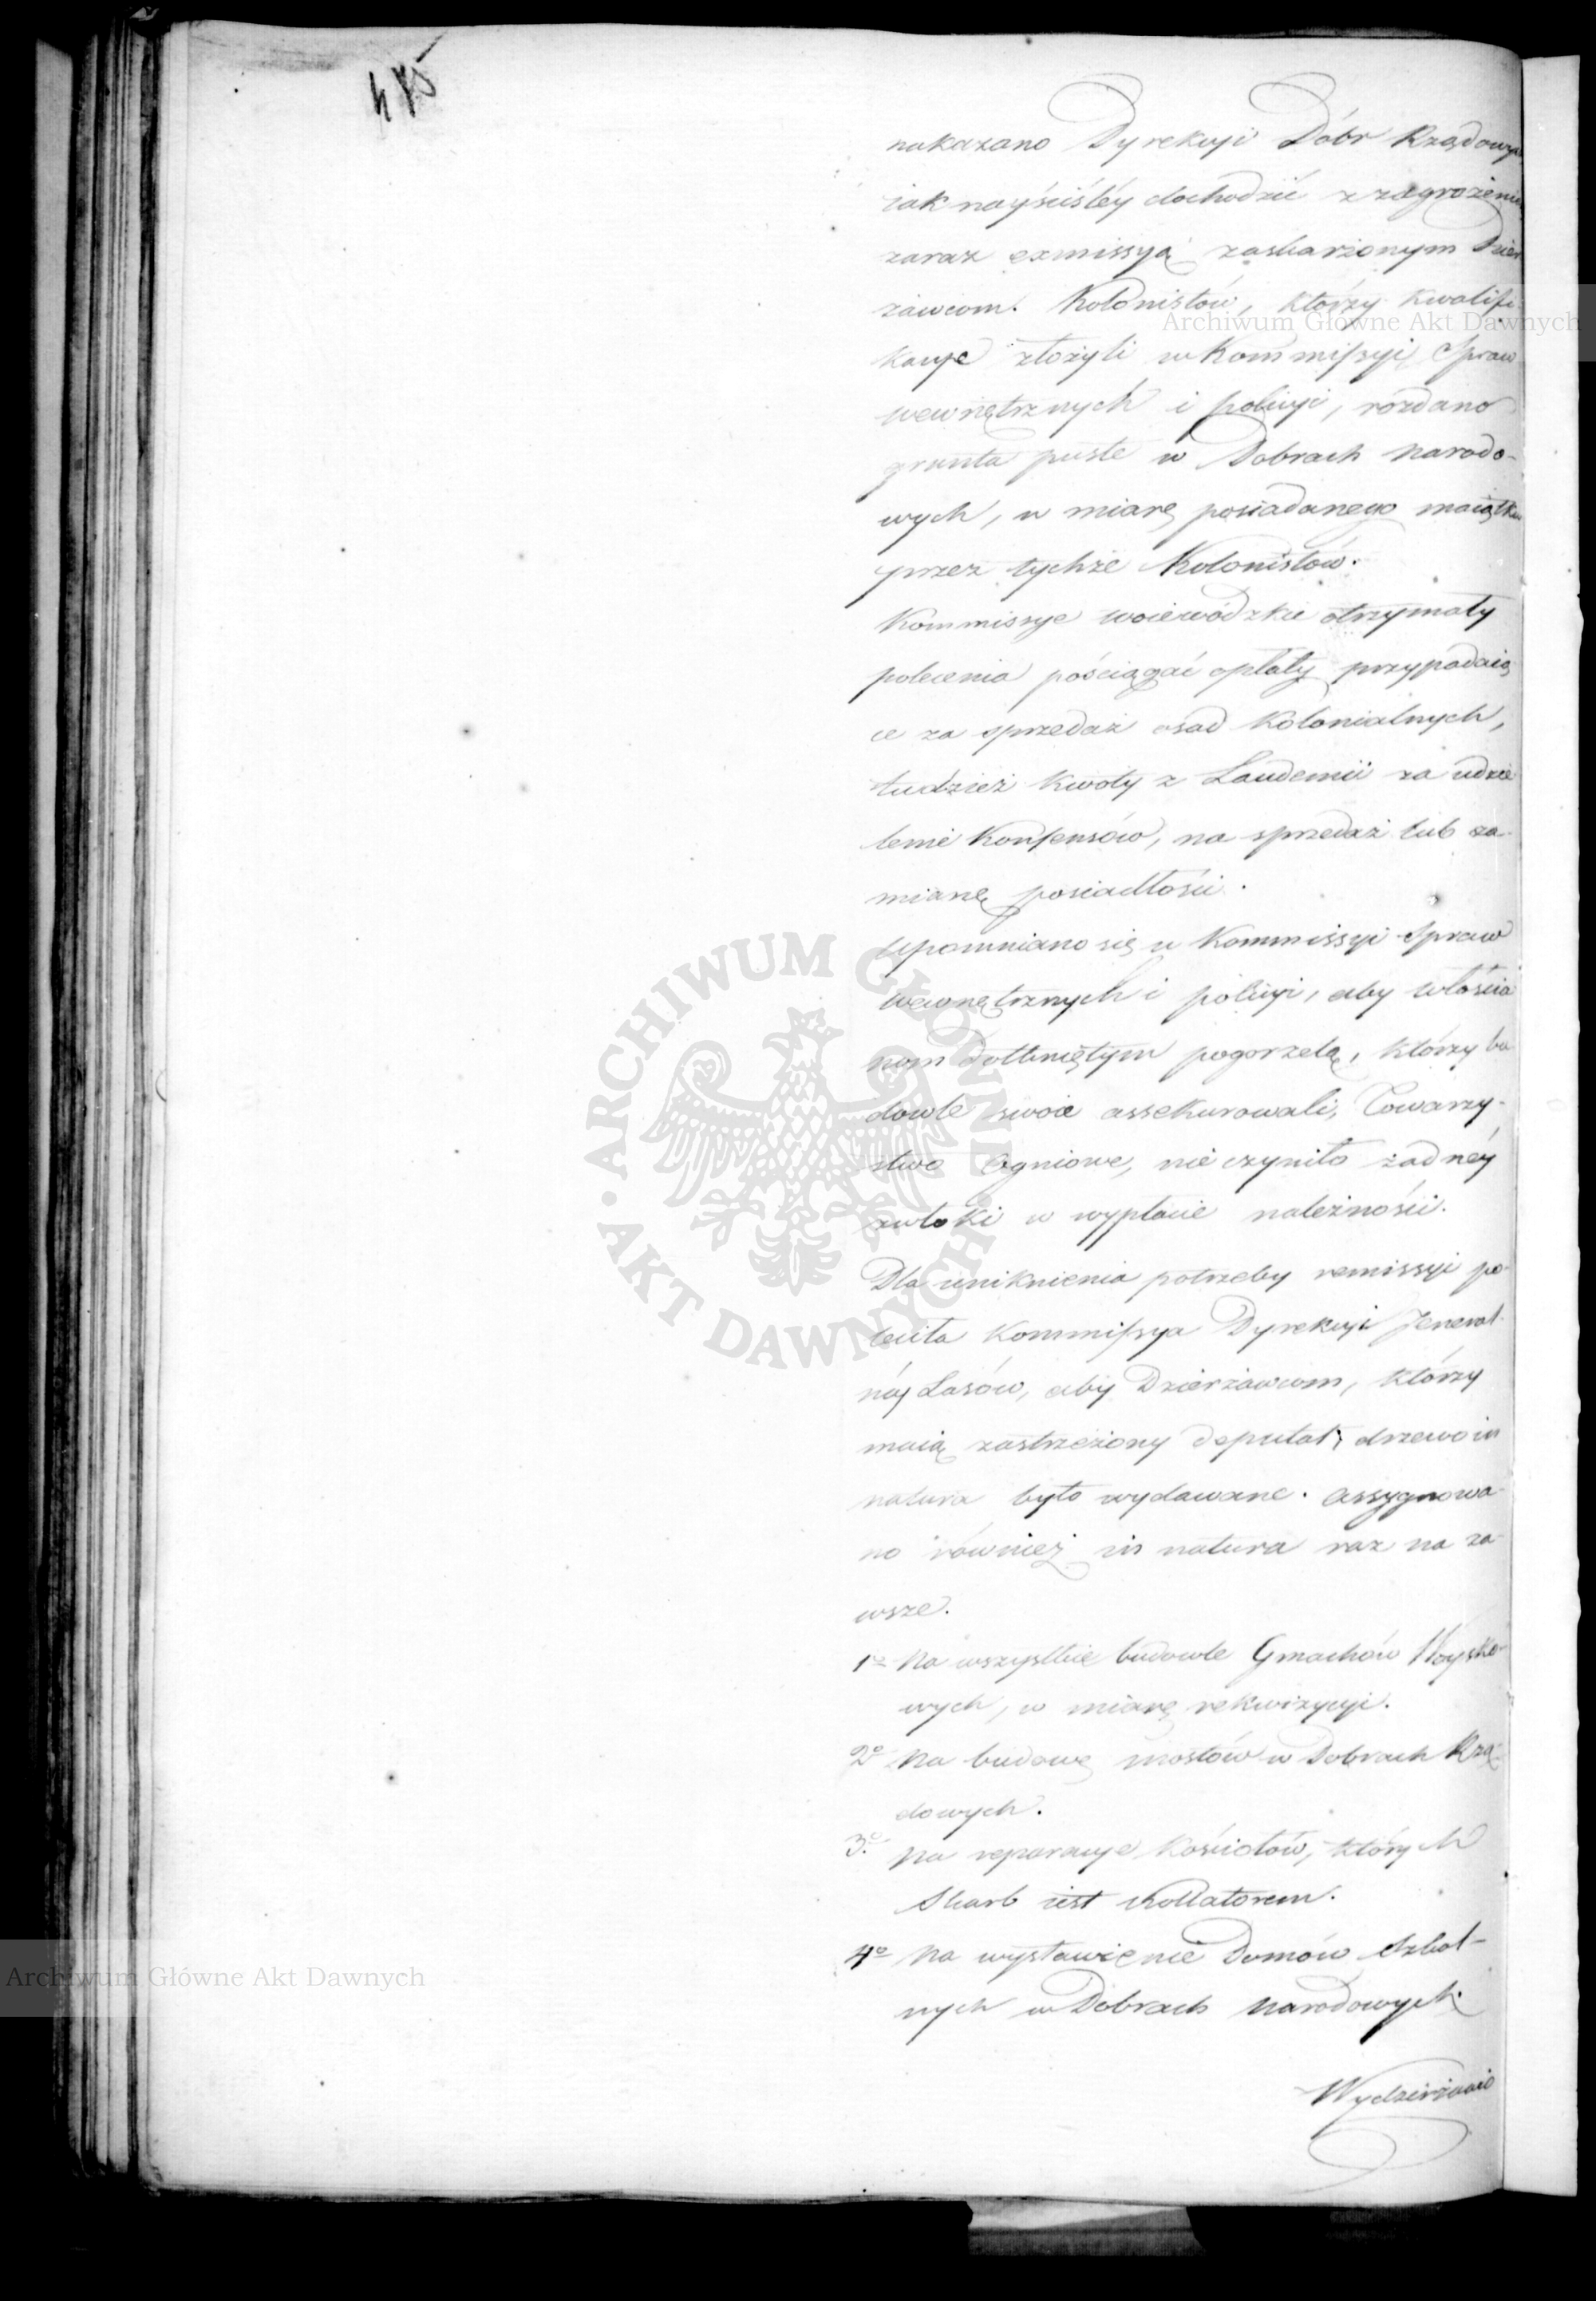 475
nakazano Dyrekcyi Dóbr Rządowych
iak nayściśléy dochodzić z zagrożeniem
zaraz exmissyą zaskarżonym Dzier
żawcom. Kolonistów, którzy kwalifi-
kacye złożyli w Kommissyi Spraw
wewnętrznych i policyi, rozdano
grunta puste w Dobrach narodo-
wych, w miarę posiadanego maiątku
przez tychże Kolonistów.
Kommissye woiewódzkie otrzymały
polecenia pościągać opłaty przypadaią
ce za sprzedaż osad Kolonialnych,
tudzież kwoty z Laudemii za udzie
lenie Konsensów, na sprzedaż lub za-
mianę posiadłości.
Upomniano się u Kommissyi Spraw
wewnętrznych i policyi, aby włościa
nom dotkniętym pogorzelą, którzy bu
dowle swoie assekurowali, Towarzy-
stwo Ogniowe, nie czyniło żadnéy
zwłoki w wypłacie należności.
Dla uniknienia potrzeby remissyi po-
leciła Kommissya Dyrekcyi Jeneral-
néy Lasów, aby Dzierżawcom, którzy
maią zastrzeżony deputat, drzewo in
natura było wydawane. Assygnowa-
no również in natura raz na za-
wsze.
1º Na wszystkie budowle Gmachów Woysko-
wych, w miarę rekwizycyi.
2º Na budowę mostów w Dobrach Rzą-
dowych.
3º Na reparacye Kościołów, których
Skarb iest Kollatorem.
4º Na wystawienie Domów Szkol-
nych w Dobrach narodowych.
Wydzierżawio
Archiwum Główne Akt Dawnych
Archiwum Główne Akt Dawnych
ARCHIWUM GŁÓWNE AKT DAWNYCH